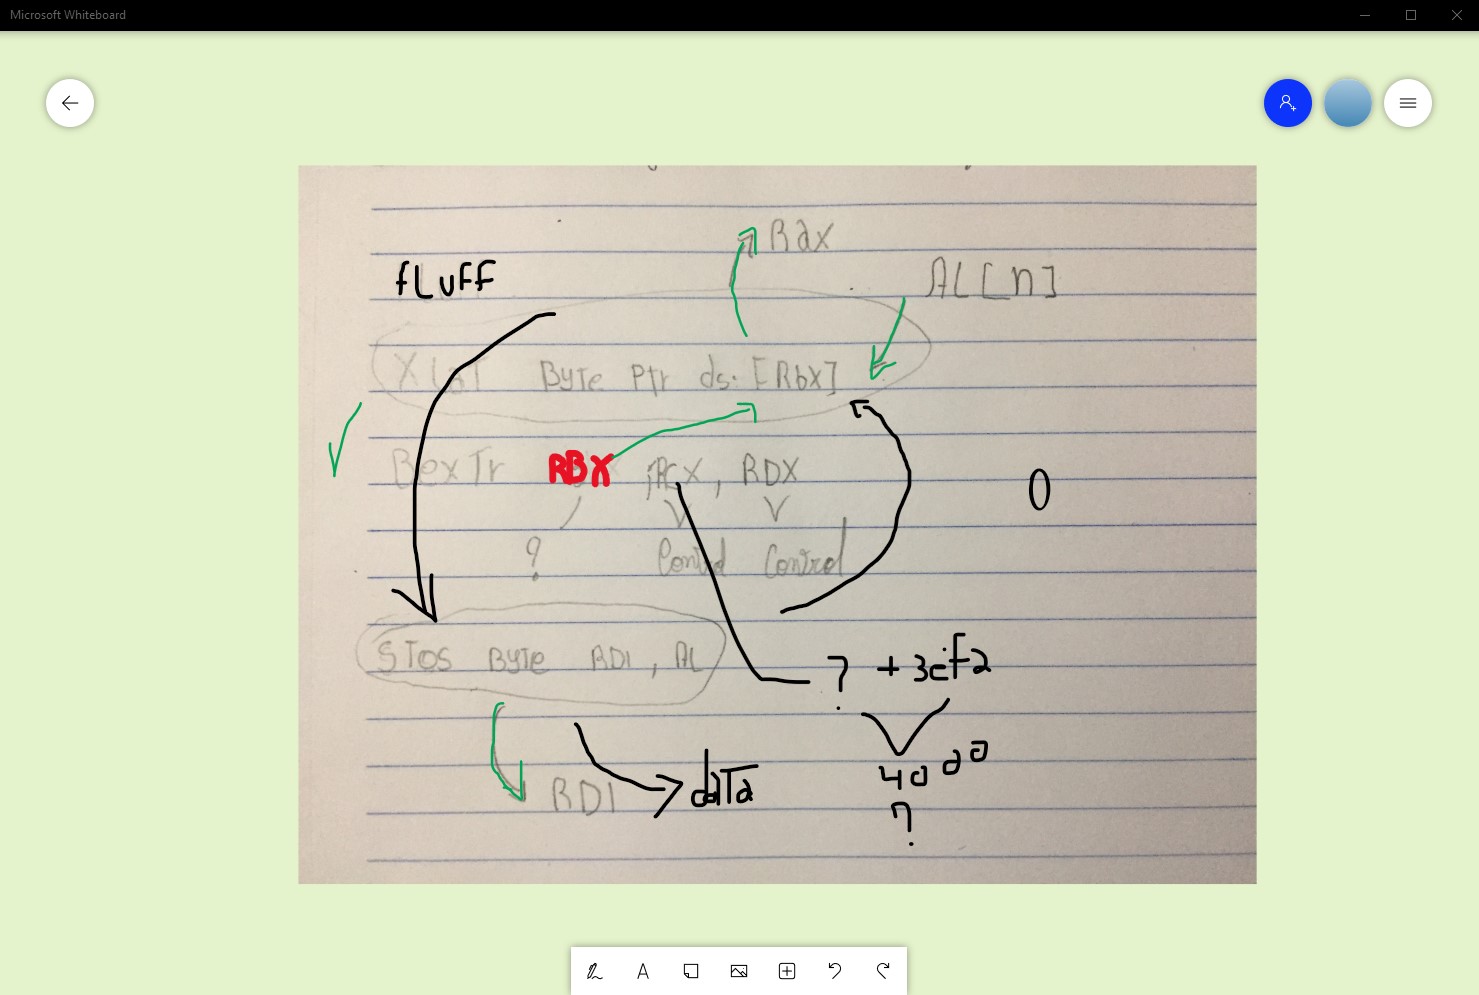 Microsoft Whiteboard
Rax
fLuFF
AL[n]
XLaT Byte Ptr ds: [Rbx]
BexTr RBX , RCX , RDX
0
? Control Control
STos Byte RDI , AL
? + 3eF2
4000
RDI daTa
?